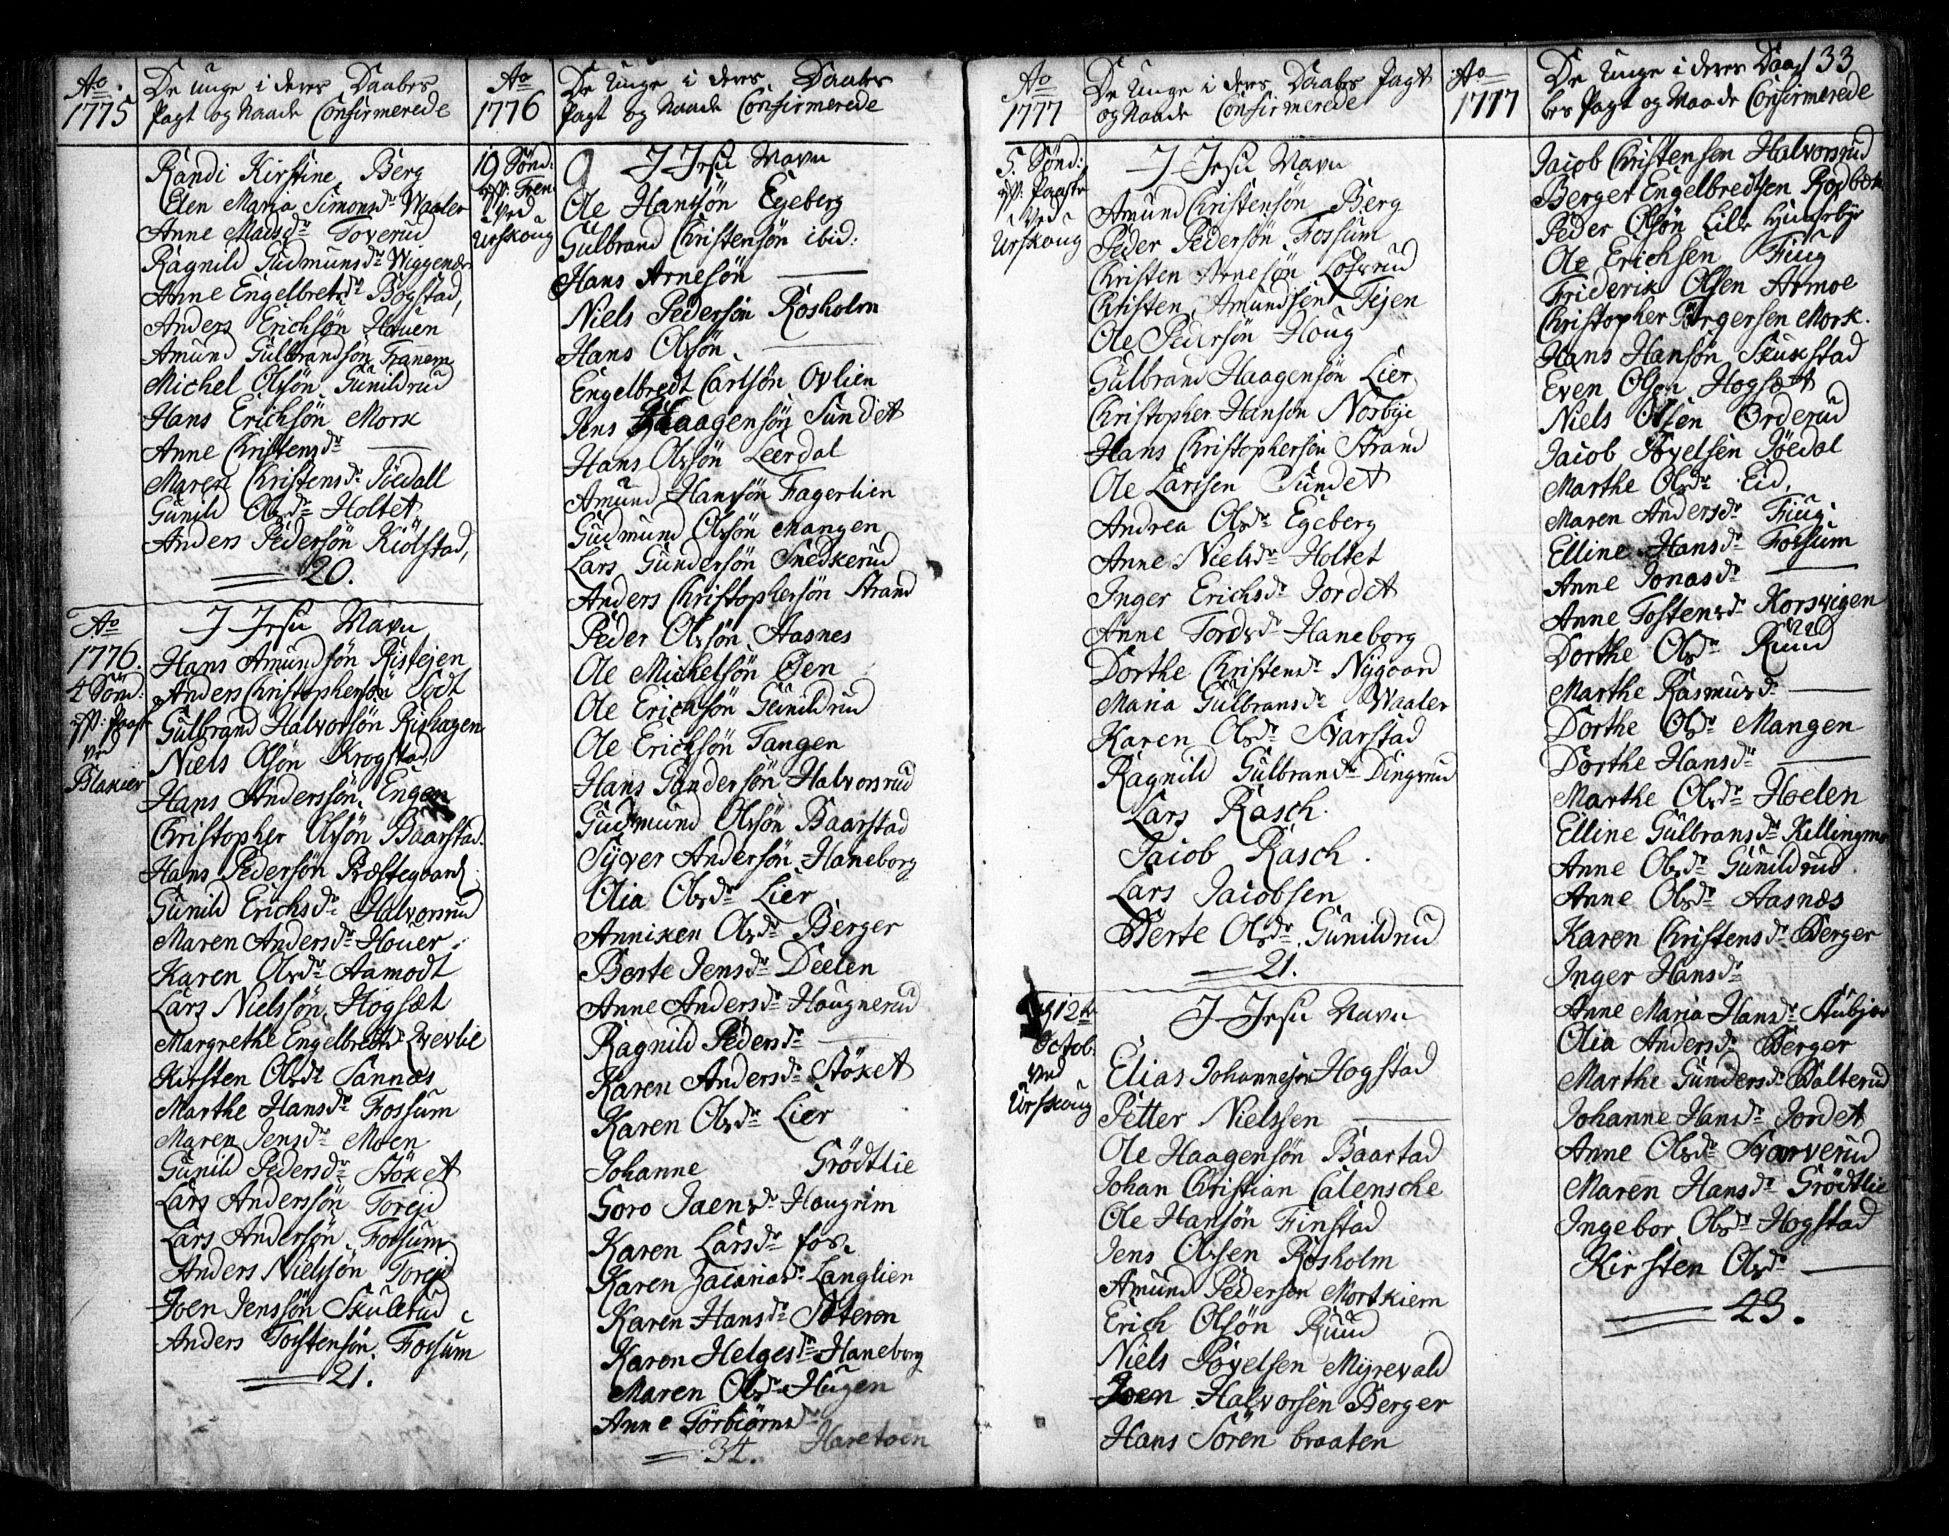 Ao 1775
De unge i deres Daabes
Pagt og Naade Confirmerede
Randi Kirstine Berg
Elen Maria Simonsdr Waaler
Anne Madsdr Toverud
Ragnild Gudmunsdr Wiggenæs
Anne Engelbretsdr Bogstad,
Anders Erichsön Hauen
Amund Gulbrandsön Tranem
Michel Olsön Gunildrud
Hans Erichsön Mork
Anne Christensdr —
Maren Christensdr Jöedall
Gunild Olsdr Holtet
Anders Pedersön Kiölstad,
20.
Ao 1776.
4 Sönd:
eft: Paaske
ved
Blakier
J Jesu Navn
Hans Amundsön Ristejen
Anders Christophersön Todt
Gulbrand Halvorsön Rishagen
Niels Olsön Krogstad
Hans Anderssön Engen
Christopher Olsön Baarstad.
Hans Pedersön Præstegaard
Gunild Erichsdr Halvorsrud
Maren Andersdr Houer
Karen Olsdr Aamodt
Lars Nielssön Hogsæt
Margrethe Engelbretsdr Qvevlie
Kirsten Olsdr Tannæs
Marthe Hansdr Fossum
Maren Jensdr Moen
Gunild Pedersdr Stöket
Lars Anderssön Torejd
Lars Andersön Fossum
Anders Nielssön Torejd
Joen Jenssön Skullerud
Anders Torstensön Fossum
21.
Ao 1776
De unge i deres Daabes
Pagt og Naade Confirmerede
19 Sönd:
eft: Tren
ved
Urskoug
J Jesu Navn
Ole Hansön Egeberg
Gulbrand Christensön ibid:
Hans Arnesön —
Niels Pedersön Rosholm
Hans Olsön —
Engelbredt Carlsön Ovlien
Jens Haagensön Sundet
Hans Olsön Leerdal
Amund Hansön Fagerlien
Gudmund Olsön Mangen
Lars Gundersön Snedkerud
Anders Christophersön Strand
Peder Olsön Aasnes
Ole Michelsön Öen
Ole Erichsön Gunildrud
Ole Erichsön Tangen
Hans Gundersön Halvorsrud
Gudmund Olsön Baarstad
Syver Andersön Haneborg
Olia Olsdr Lier
Anniken Olsdr Berger
Berte Jensdr Deelen
Anne Andersdr Hougnerud
Ragnild Pedersdr —
Karen Andersdr Stöket
Karen Olsdr Lier
Johanne Grödtlie
Goro Jaensdr Hougrim
Karen Larsdr Fos
Karen Zacariadr Langlien
Karen Hansdr Sæteren
Karen Helgesdr Haneborg
Maren Olsdr Hugen
Anne Torbiörnsdr
Haretoen
34.
Ao 1777
De unge i deres Daabes Pagt
og Naade Confirmerede
5. Sönd:
eft: Paaske
ved
Urskoug
J Jesu Navn
Amund Christensön Berg
Peder Pedersön Fossum
Christen Arnesön Lofsrud
Christen Amundsen Tejen
Ole Pedersön Houg
Gulbrand Haagensön Lier
Christopher Hansön Norbye
Hans Christophersön Strand
Ole Larssen Sundet
Andrea Olsdr Egeberg
Anne Nielsdr Holtet
Inger Erichsdr Jordet
Anne Tordsdr Haneborg
Dorthe Christensdr Nygaard
Maria Gulbransdr Waaler
Karen Olsdr Svarstad
Ragnild Gulbransdr Dingsrud
Lars Rasch.
Jacob Rasch.
Lars Jacobsen
Berte Olsdr Gunildrud
21.
12te
Octob.
ved
Urskoug
J Jesu Navn
Elias Johannesön Hogstad
Petter Nielssen —
Ole Haagensön Baarstad
Johan Christian Calensche
Ole Hansön Finstad
Jens Olssen Rosholm
Amund Pedersen Mortkiern
Erich Olsön Ruud
Niels Povelsen Migrevald
Joen Halvorsen Berger
Hans Sören braaten
Ao 1777
133
De unge i deres Daa
bes Pagt og Naade Confirmerede
Jacob Christensen Halvorsrud
Berger Engelbredtsen Rodbøl
Peder Olsön Lille Himerbye
Ole Erichsen Fiug
Friderik Olsen Armoe
Christopher Jörgersen Mork.
Hans Hansön Skukstad
Even Olsen Hogsæt
Niels Olsen Orderud
Jacob Povelsen Jöedal
Marthe Olsdr Eid
Maren Andersdr Fiug
Elline Hansdr Fossum
Anne Jonasdr —
Anne Tostensdr Korsvigen
Dorthe Olsdr Ruud
Marthe Rasmusdr —
Dorthe Olsdr Mangen
Dorthe Hansdr —
Marthe Olsdr Hoelen
Elline Gulbransdr Killingmo
Anne Olsdr Gunildrud
Anne Olsdr Aasnæs
Karen Christensdr Berger
Inger Hansdr
Anne Maria Hansdr
Olia Andersdr Berger
Marthe Gundersdr Balterud
Johanne Hansdr Jordet
Anne Olsdr Svarverud
Maren Hansdr Grödtlie
Ingebor Olsdr Hogstad
Kirsten Olsdr —
43.